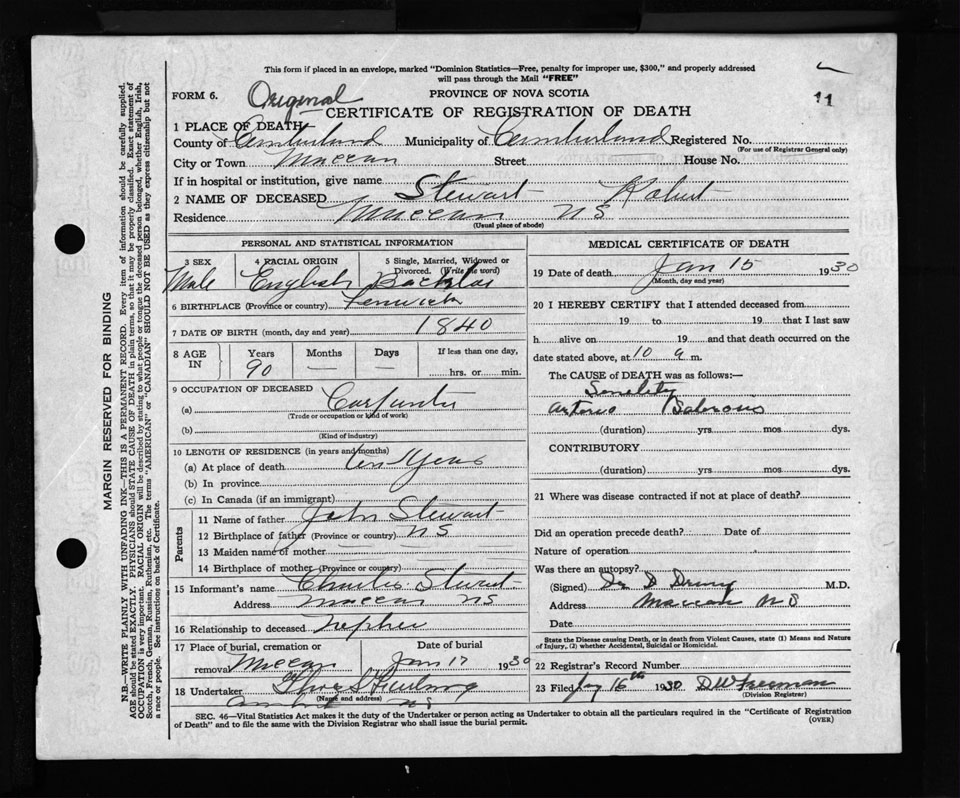 This form if placed in an envelope, marked "Dominion Statistics—Free, penalty for improper use, $300," and properly addressed
will pass through the Mail "FREE"
FORM 6. Original PROVINCE OF NOVA SCOTIA 11
CERTIFICATE OF REGISTRATION OF DEATH
1 PLACE OF DEATH
County of Cumberland Municipality of Cumberland Registered No.
(For use of Registrar General only)
City or Town Maccan Street House No.
If in hospital or institution, give name
2 NAME OF DECEASED Stewart Robert
Residence Maccan NS
(Usual place of abode)
PERSONAL AND STATISTICAL INFORMATION
3 SEX 4 RACIAL ORIGIN 5 Single, Married, Widowed or
Divorced. (Write the word)
Male English Bachelor
6 BIRTHPLACE (Province or country) Fenwick
7 DATE OF BIRTH (month, day and year) 1840
8 AGE IN Years Months Days If less than one day,
90 — — hrs. or min.
9 OCCUPATION OF DECEASED
(a) Carpenter
(Trade or occupation or kind of work)
(b)
(Kind of industry)
10 LENGTH OF RESIDENCE (in years and months)
(a) At place of death Years
(b) In province
(c) In Canada (if an immigrant)
Parents
11 Name of father John Stewart
12 Birthplace of father (Province or country) NS
13 Maiden name of mother —
14 Birthplace of mother (Province or country)
15 Informant's name Charles Stewart
Address Maccan NS
16 Relationship to deceased nephew
17 Place of burial, cremation or Date of burial
removal Maccan Jan 17 1930
18 Undertaker
(Name and address)
Amherst NS
MEDICAL CERTIFICATE OF DEATH
19 Date of death Jan 15 1930
(Month, day and year)
20 I HEREBY CERTIFY that I attended deceased from
19 to 19 that I last saw
h alive on 19 and that death occurred on the
date stated above, at 10 a m.
The CAUSE of DEATH was as follows:—
Senility
Arterio
(duration) yrs mos dys.
CONTRIBUTORY
(duration) yrs. mos. dys.
21 Where was disease contracted if not at place of death?
Did an operation precede death? Date of
Nature of operation
Was there an autopsy?
(Signed) Dr D Drury M.D.
Address Maccan NS
Date
State the Disease causing Death, or in death from Violent Causes, state (1) Means and Nature
of Injury, (2) whether Accidental, Suicidal or Homicidal.
22 Registrar's Record Number
23 Filed Jany 16th 1930 D W Freeman
(Division Registrar)
SEC. 46—Vital Statistics Act makes it the duty of the Undertaker or person acting as Undertaker to obtain all the particulars required in the "Certificate of Registration
of Death" and to file the same with the Division Registrar who shall issue the burial permit. (OVER)
MARGIN RESERVED FOR BINDING
N.B.—WRITE PLAINLY WITH UNFADING INK—THIS IS A PERMANENT RECORD. Every item of information should be carefully supplied.
AGE should be stated EXACTLY. PHYSICIANS should STATE CAUSE OF DEATH in plain terms, so that it may be properly classified. Exact statement of
OCCUPATION is very important. RACIAL ORIGIN will be described by stating to what people or tongue the deceased person belonged, whether English, Irish,
Scotch, French, German, Russian, Ruthenian, etc. The terms "AMERICAN" or "CANADIAN" SHOULD NOT BE USED as they express citizenship but not
a race or people. See instructions on back of Certificate.